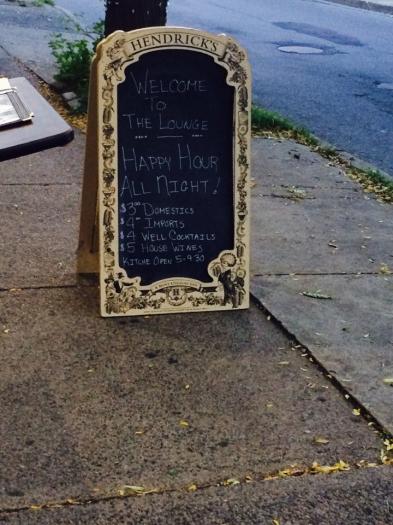 HENDRICK'S
WELCOME
TO
THE LOUNGE
HAPPY HOUR
ALL NIGHT!
$3.00 DOMESTICS
$4.00 IMPORTS
$4 WELL COCKTAILS
$5 HOUSE WINES
KITCHE OPEN 5-9:30